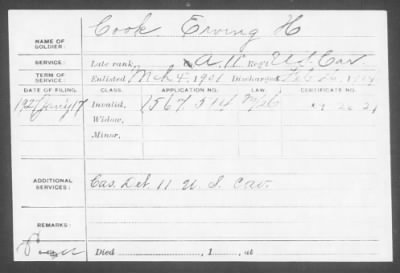 NAME OF SOLDIER: Cook, Erving H
SERVICE: Late rank, A. 11 Reg't U.S. Cav.
TERM OF SERVICE: Enlisted Mch 4, 1901 Discharged
DATE OF FILING. CLASS. APPLICATION NO. LAW. CERTIFICATE NO.
Invalid, 1567514
Widow,
Minor,
ADDITIONAL SERVICES: Cas. Det. 11 U. S. Cav.
REMARKS:
Died , 1 , at